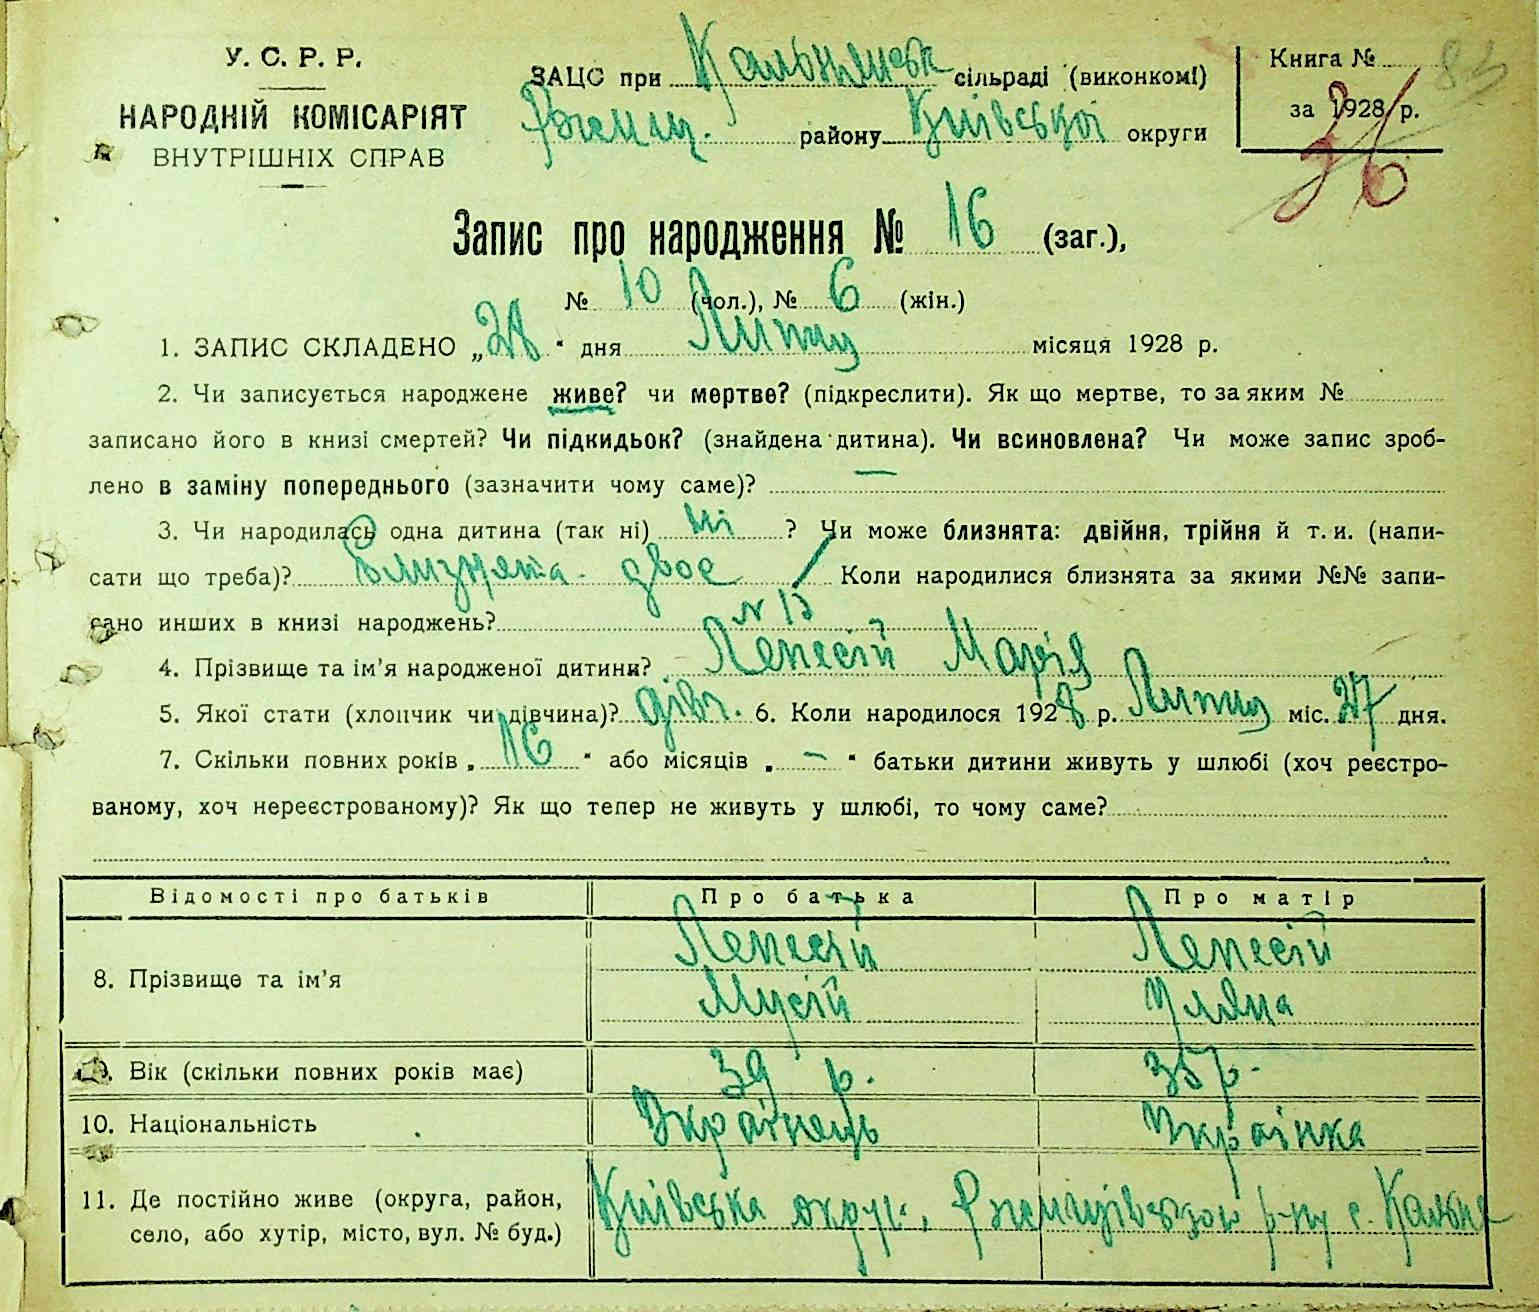 У. С. Р. Р.
НАРОДНІЙ КОМІСАРІЯТ
ВНУТРІШНІХ СПРАВ
ЗАЦС при Кальнянськ сільраді (виконкомі)
Ржищ. району Київської округи
Книга №
за 1928 р.
83
26
Запис про народження № 16 (заг.),
№ 10 (чол.), № 6 (жін.)
1. ЗАПИС СКЛАДЕНО „28“ дня Липця місяця 1928 р.
2. Чи записується народжене живе? чи мертве? (підкреслити). Як що мертве, то за яким №
записано його в книзі смертей? Чи підкидьок? (знайдена дитина). Чи всиновлена? Чи може запис зроб-
лено в заміну попереднього (зазначити чому саме)? —
3. Чи народилась одна дитина (так ні) ні ? Чи може близнята: двійня, трійня й т. и. (напи-
сати що треба)? Близнята - двое Коли народилися близнята за якими №№ запи-
сано инших в книзі народжень? № 15
4. Прізвище та ім’я народженої дитини? Лепесій Марія
5. Якої стати (хлопчик чи дівчина)? дівч. 6. Коли народилося 1928 р. Липця міс. 27 дня.
7. Скільки повних років „16“ або місяців „—“ батьки дитини живуть у шлюбі (хоч реєстро-
ваному, хоч нереєстрованому)? Як що тепер не живуть у шлюбі, то чому саме?
Відомості про батьків Про батька Про матір
8. Прізвище та ім’я Лепесій Мусій Лепесій Уляна
9. Вік (скільки повних років має) 39 р. 35 р.
10. Національність Українець Українка
11. Де постійно живе (округа, район, село, або хутір, місто, вул. № буд.) Київська округ., Ржищівського р-ну с. Кальне